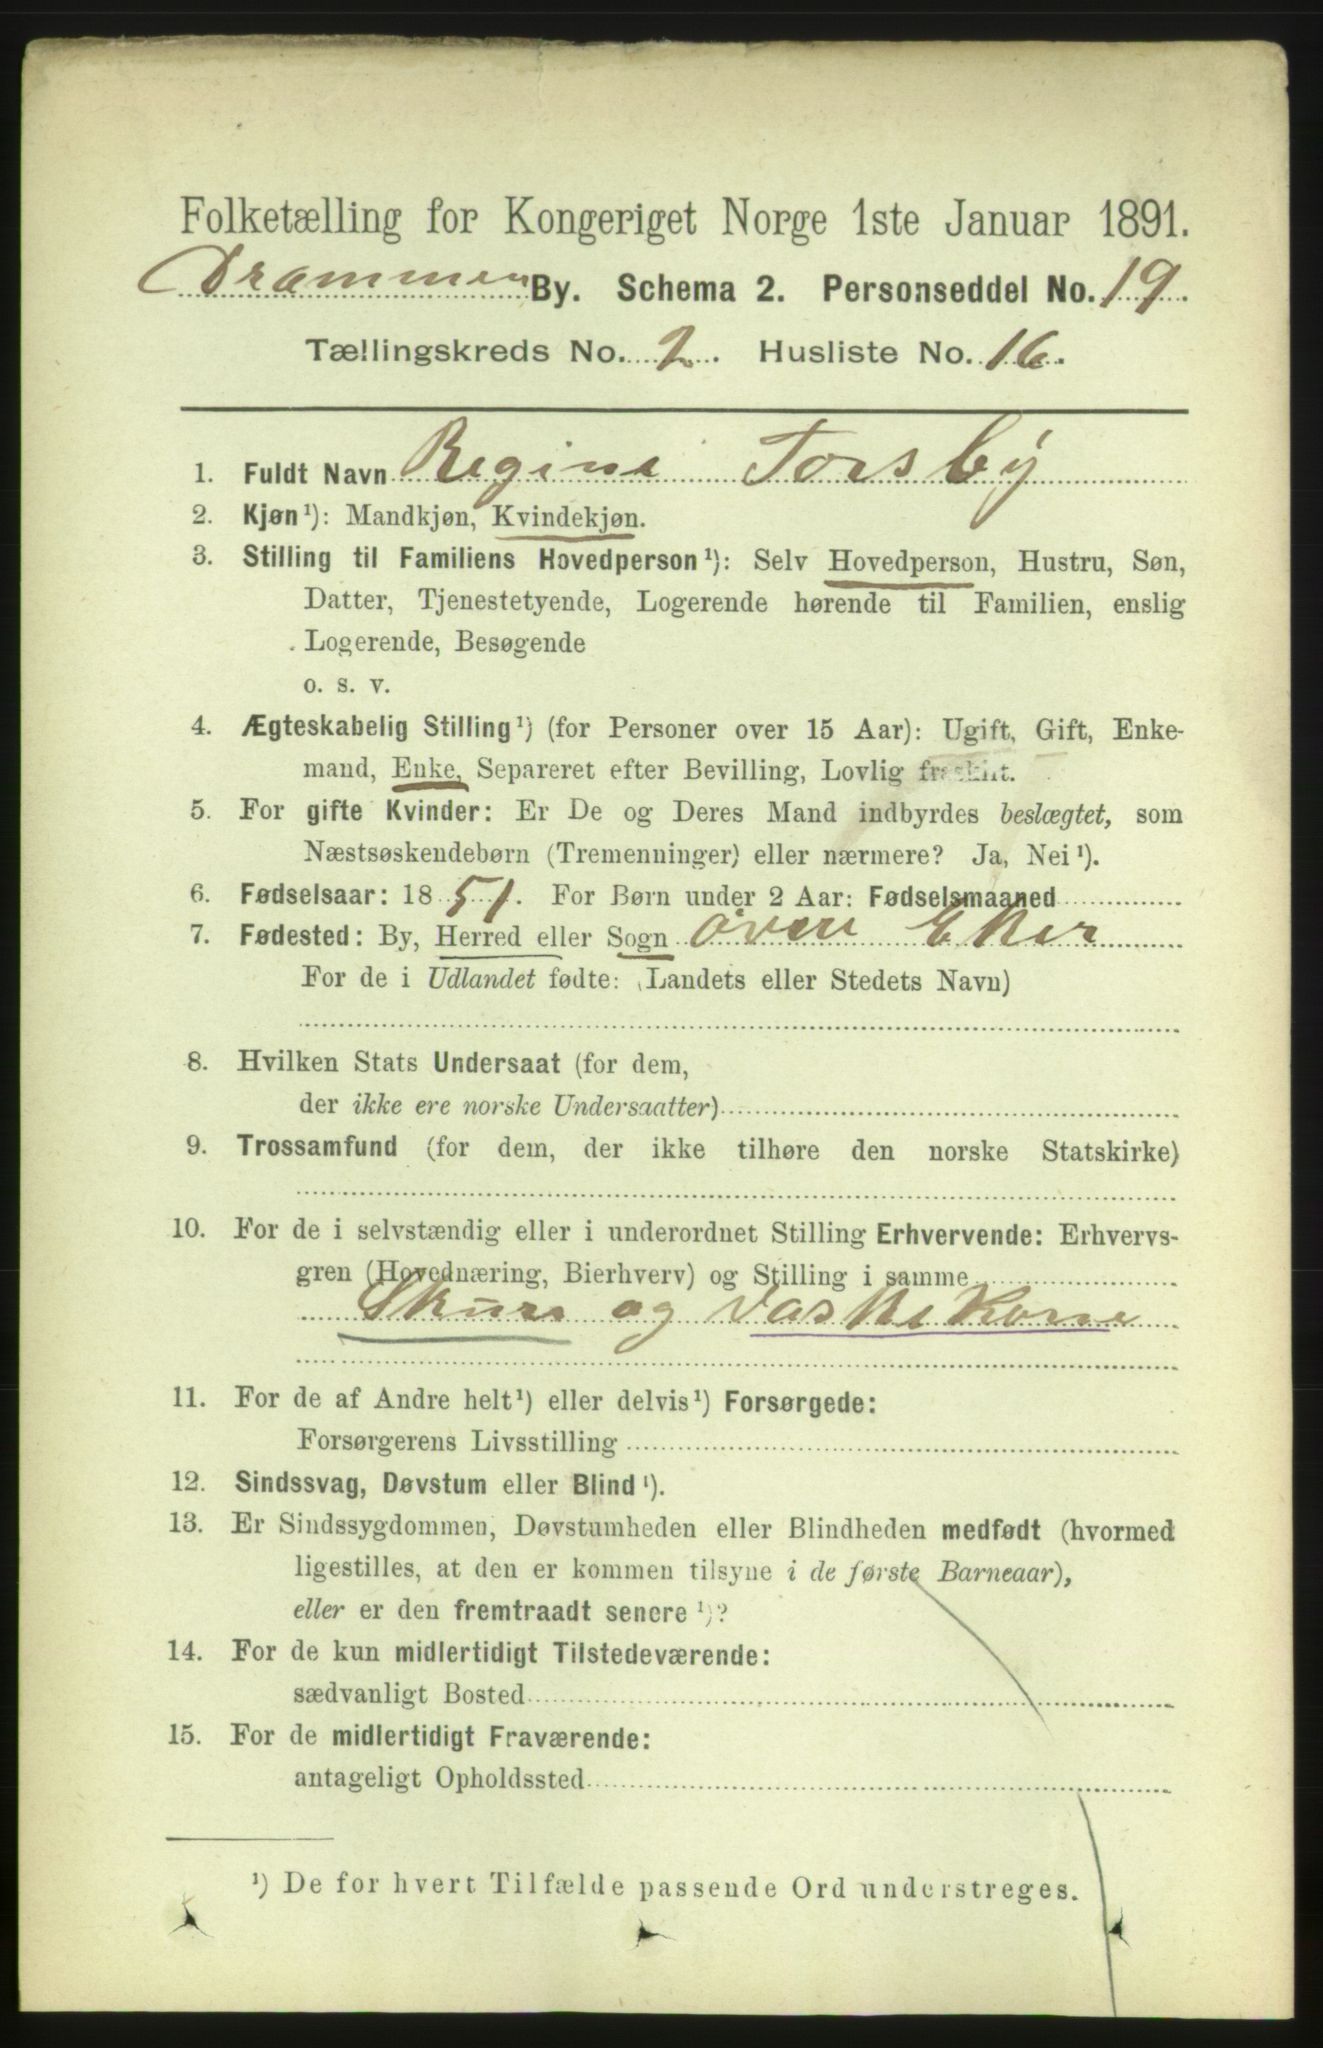 Folketælling for Kongeriget Norge 1ste Januar 1891.
Drammen By. Schema 2. Personseddel No. 19.
Tællingskreds No. 2. Husliste No. 16.
1. Fuldt Navn Regine Forsby
2. Kjøn¹): Mandkjøn, Kvindekjøn.
3. Stilling til Familiens Hovedperson¹): Selv Hovedperson, Hustru, Søn,
Datter, Tjenestetyende, Logerende hørende til Familien, enslig
Logerende, Besøgende
o. s. v.
4. Ægteskabelig Stilling¹) (for Personer over 15 Aar): Ugift, Gift, Enke-
mand, Enke, Separeret efter Bevilling, Lovlig fraskilt.
5. For gifte Kvinder: Er De og Deres Mand indbyrdes beslægtet, som
Næstsøskendebørn (Tremenninger) eller nærmere? Ja, Nei¹).
6. Fødselsaar: 1851. For Børn under 2 Aar: Fødselsmaaned
7. Fødested: By, Herred eller Sogn øvre Eker
For de i Udlandet fødte: (Landets eller Stedets Navn)
8. Hvilken Stats Undersaat (for dem,
der ikke ere norske Undersaatter)
9. Trossamfund (for dem, der ikke tilhøre den norske Statskirke)
10. For de i selvstændig eller i underordnet Stilling Erhvervende: Erhvervs-
gren (Hovednæring, Bierhverv) og Stilling i samme
Skure og Vaskekone
11. For de af Andre helt¹) eller delvis¹) Forsørgede:
Forsørgerens Livsstilling
12. Sindssvag, Døvstum eller Blind¹).
13. Er Sindssygdommen, Døvstumheden eller Blindheden medfødt (hvormed
ligestilles, at den er kommen tilsyne i de første Barneaar),
eller er den fremtraadt senere¹)?
14. For de kun midlertidigt Tilstedeværende:
sædvanligt Bosted
15. For de midlertidigt Fraværende:
antageligt Opholdssted
¹) De for hvert Tilfælde passende Ord understreges.